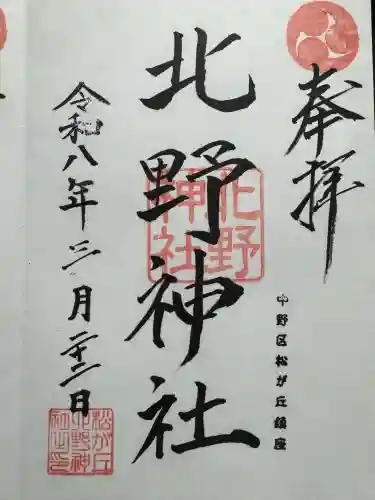 奉拝
中野区松が丘鎮座
北野神社
北野
神社
令和八年三月二十二日
松が丘
北野神
社之印